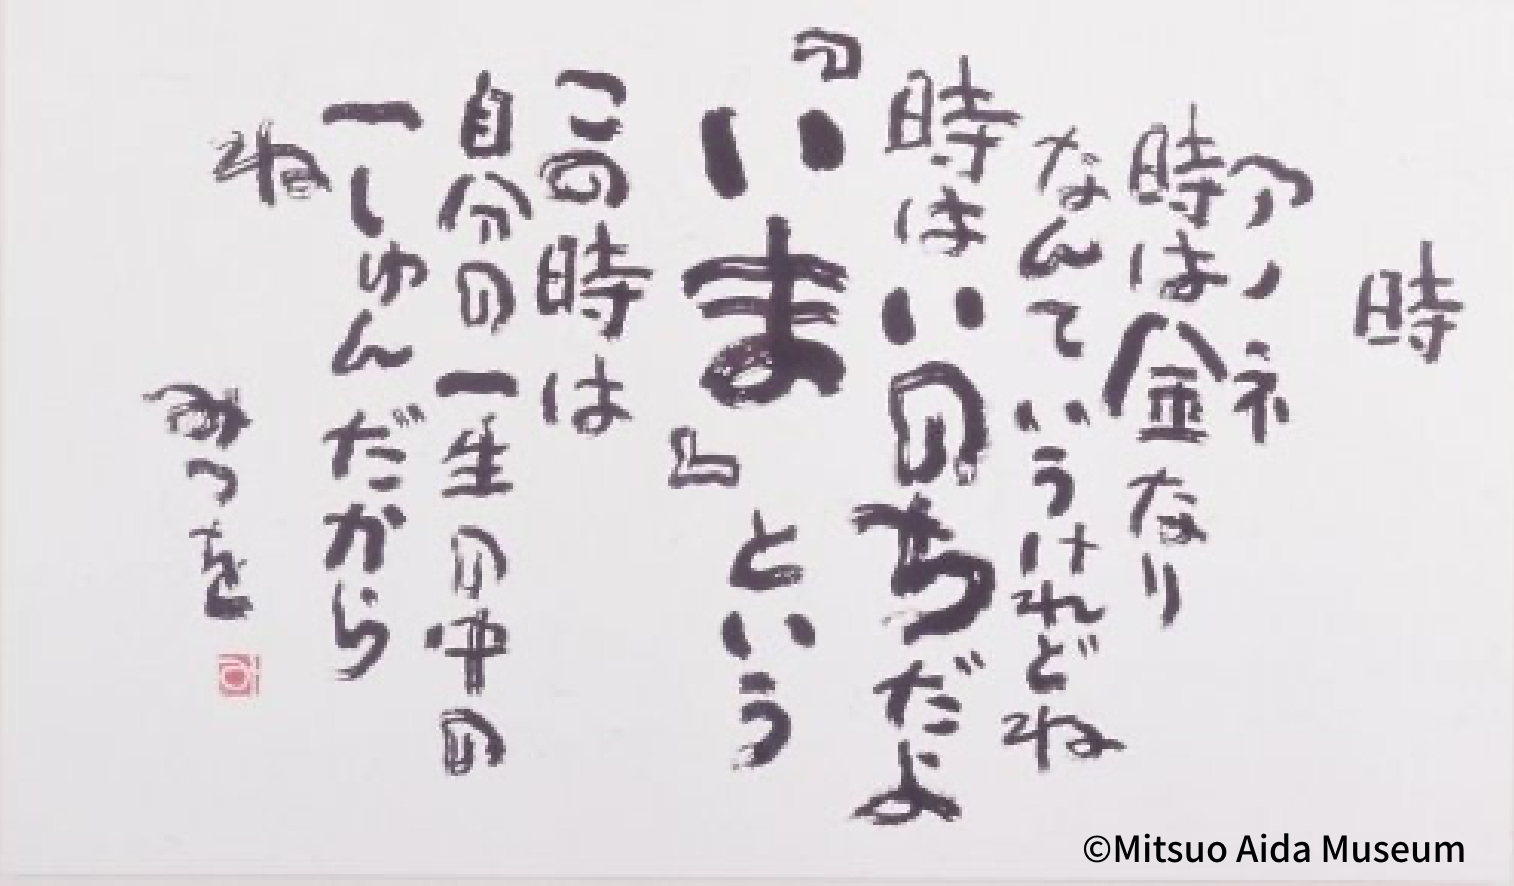 時
アノネ
時は金なり
なんていうけれどね
時はいのちだよ
『いま』という
この時は
自分の一生の中の
一しゅんだから
ね
みつを
©Mitsuo Aida Museum